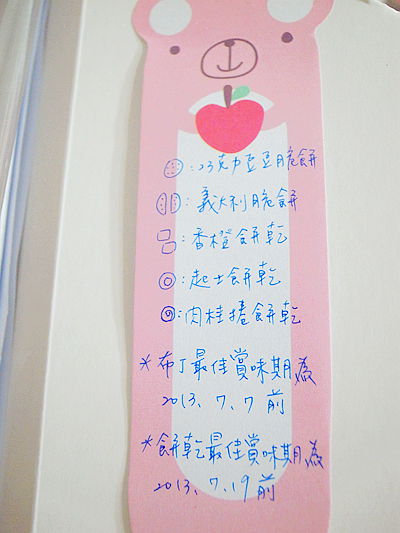 ：巧克力豆豆脆餅
：義大利脆餅
：香橙餅乾
：起士餅乾
：肉桂捲餅乾
*布丁最佳賞味期為
2013、7、7前
*餅乾最佳賞味期為
2013、7、19前